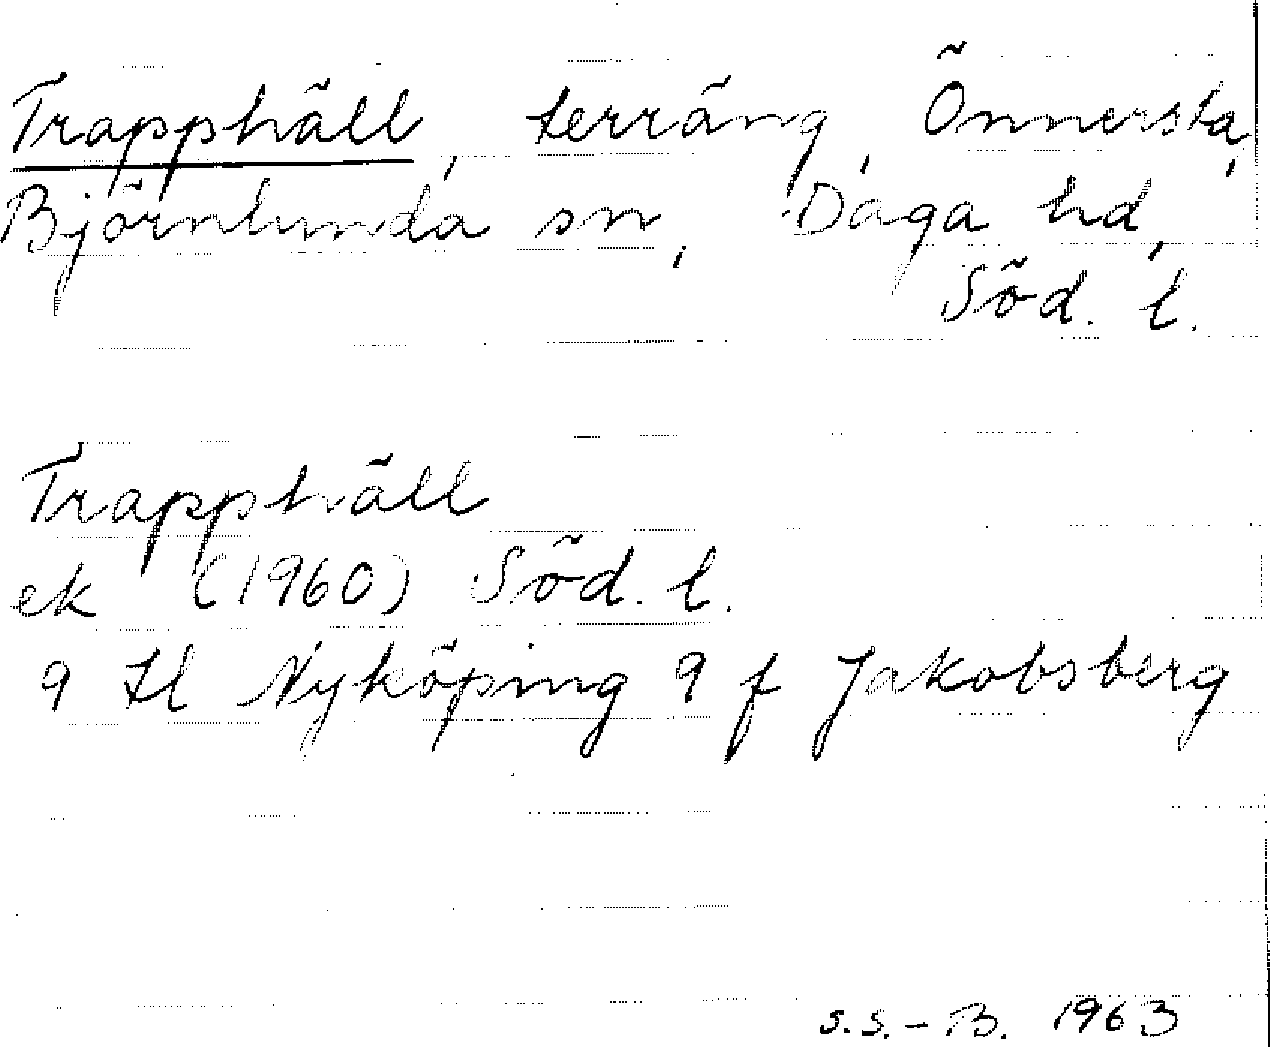 Trapphäll, terräng, Önnersta,
Björnlunda sn, Daga hd,
Söd. l.
Trapphäll
ek (1960) Söd. l.
9 H Nyköping 9 f Jakobsberg
S.S.-B. 1963